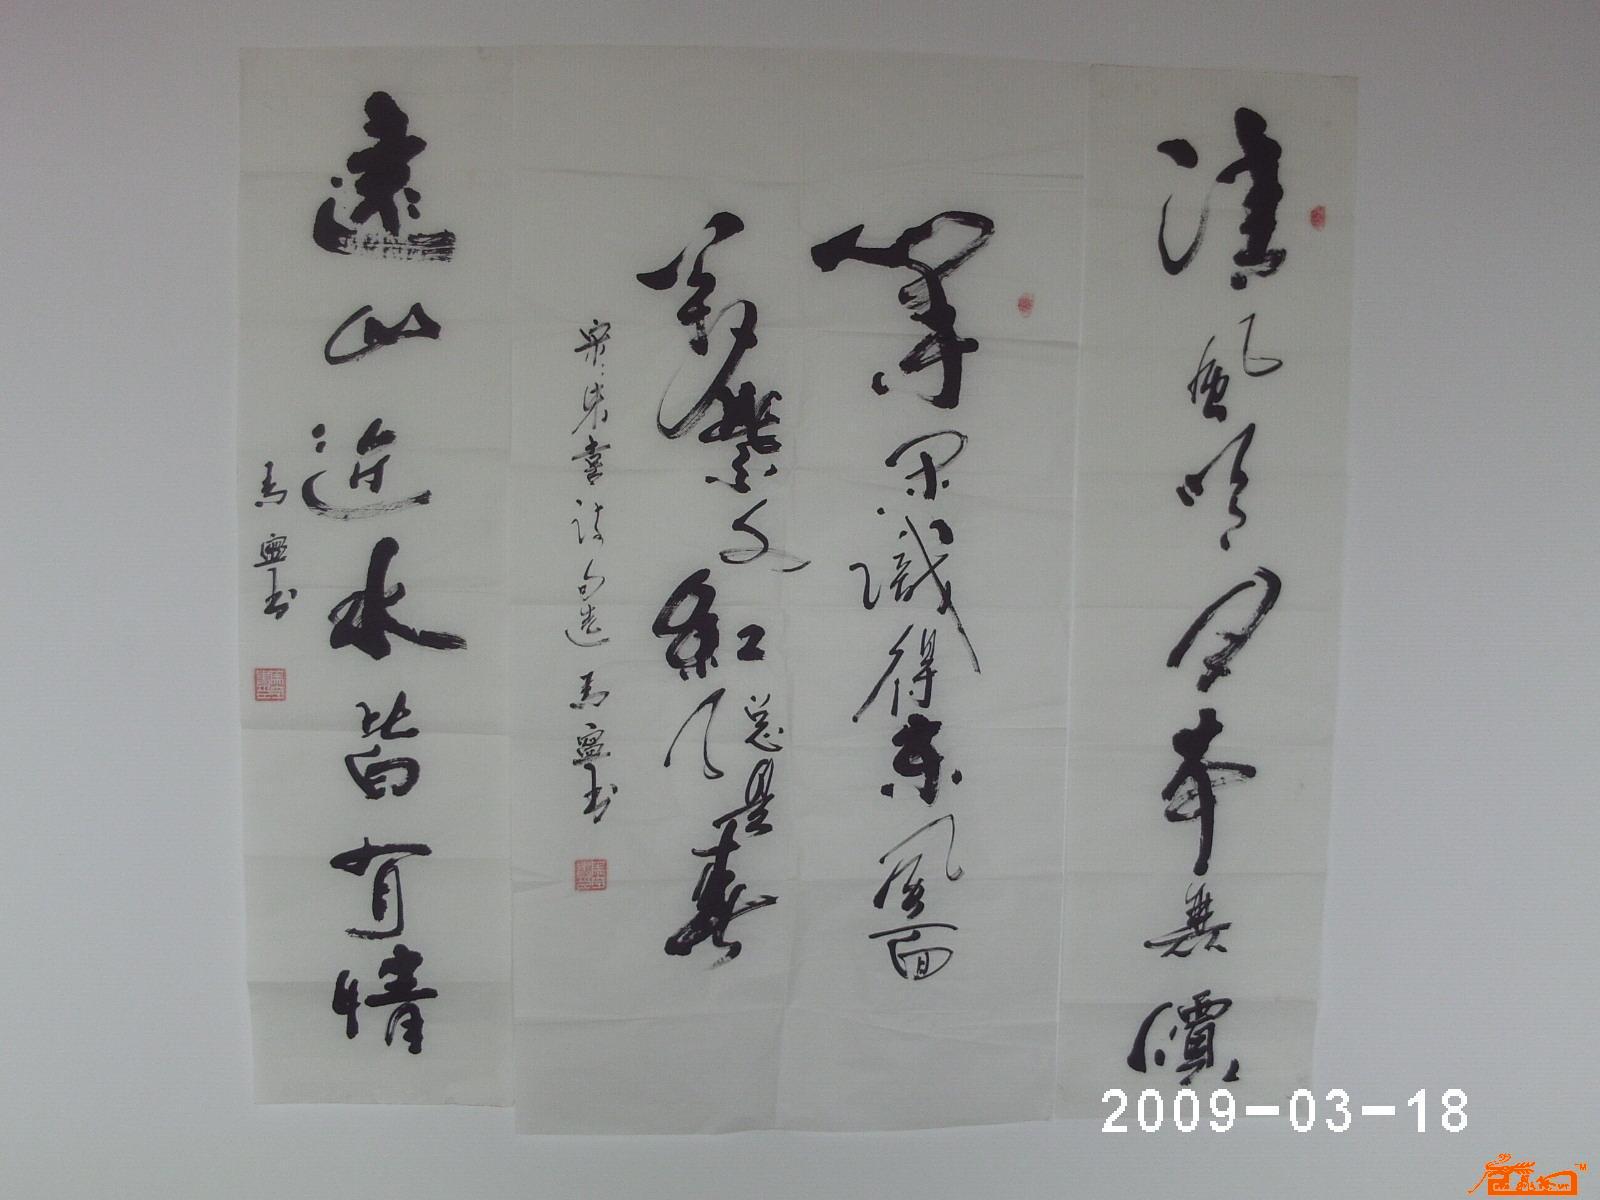 清風明月本無價
等閑識得東風面
萬紫千紅总是春
宋朱熹诗句選 馬寧书
遠山近水皆有情
馬寧书
2009-03-18